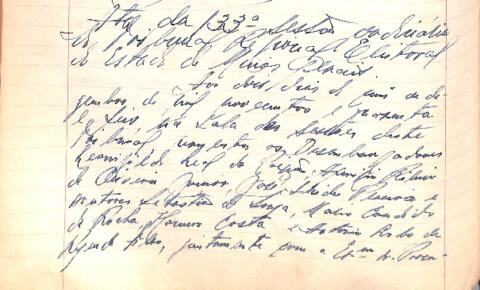 Ata da 133ª sessão ordinária
do Tribunal Regional Eleitoral
do Estado de Minas Gerais.
Aos dois dias do mês de de-
zembro de mil novecentos e quarenta
e seis na Sala das Sessões deste
Tribunal, os Desembargadores
Leal da Paixão,
de Oliveira José Alcides Pereira e
Doutores Sebastião de Souza, Mario Candido
da Rocha, Costa e Antonio
Filho, juntamente com o Exmº. Dr. Procu-